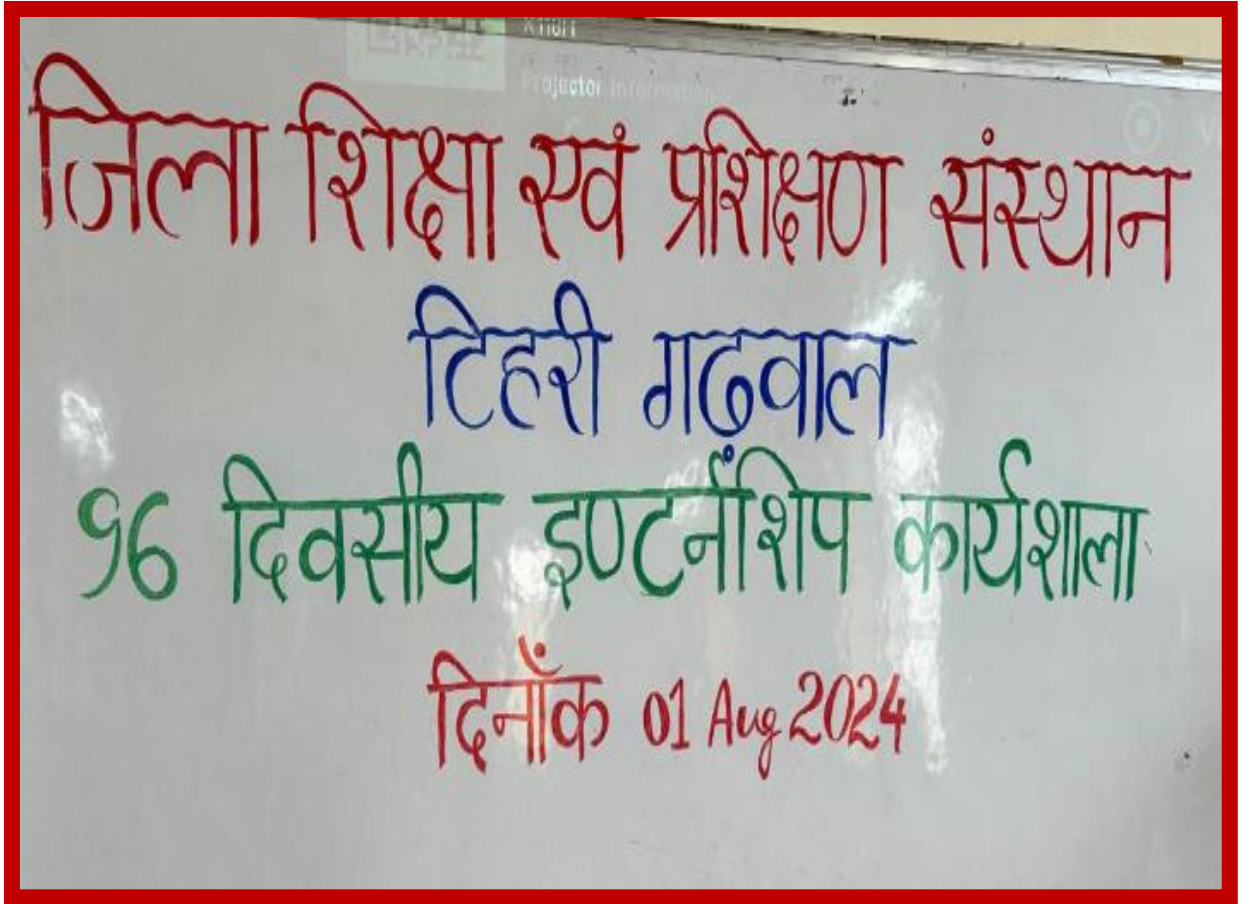 Projector Information
जिला शिक्षा एवं प्रशिक्षण संस्थान
टिहरी गढ़वाल
96 दिवसीय इण्टर्नशिप कार्यशाला
दिनाँक 01 Aug 2024